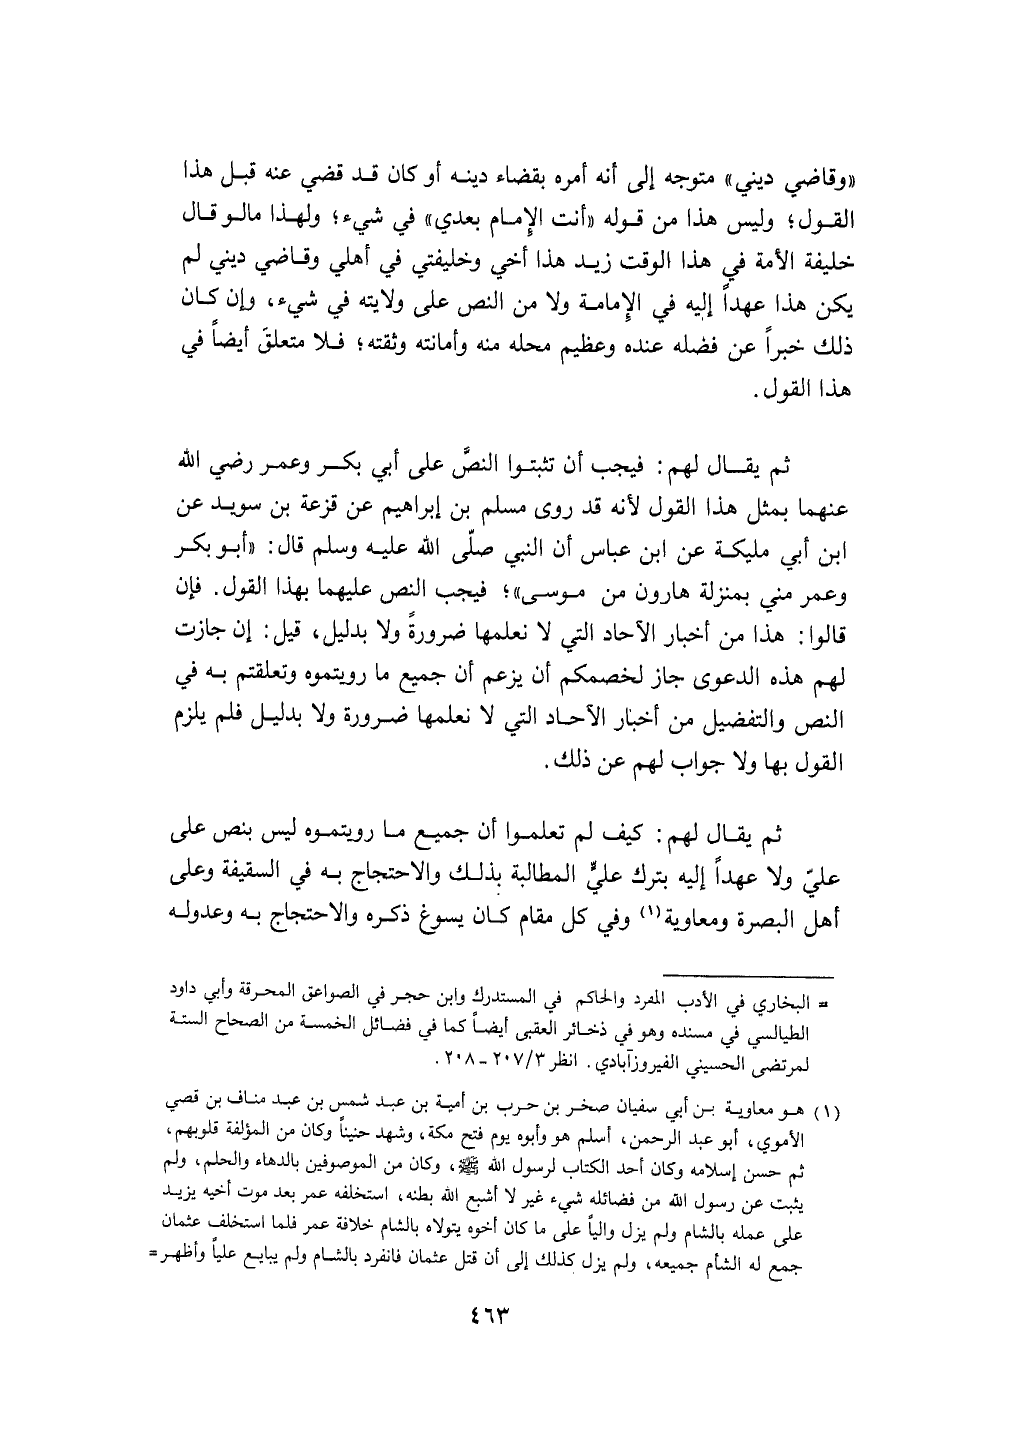 «وقاضي ديني» متوجه إلى أنه أمره بقضاء دينه أو كان قد قضي عنه قبل هذا
القول؛ وليس هذا من قوله «أنت الإمام بعدي» في شيء؛ ولهذا مالو قال
خليفة الأمة في هذا الوقت زيد هذا أخي وخليفتي في أهلي وقاضي ديني لم
يكن هذا عهداً إليه في الإمامة ولا من النص على ولايته في شيء، وإن كان
ذلك خبراً عن فضله عنده وعظيم محله منه وأمانته وثقته؛ فلا متعلقَ أيضاً في
هذا القول.
ثم يقال لهم: فيجب أن تثبتوا النصَّ على أبي بكر وعمر رضي الله
عنهما بمثل هذا القول لأنه قد روى مسلم بن إبراهيم عن قزعة بن سويد عن
ابن أبي مليكة عن ابن عباس أن النبي صلّى الله عليه وسلم قال: «أبو بكر
وعمر مني بمنزلة هارون من موسى»؛ فيجب النص عليهما بهذا القول. فإن
قالوا: هذا من أخبار الآحاد التي لا نعلمها ضرورةً ولا بدليل، قيل: إن جازت
لهم هذه الدعوى جاز لخصمكم أن يزعم أن جميع ما رويتموه وتعلقتم به في
النص والتفضيل من أخبار الآحاد التي لا نعلمها ضرورة ولا بدليل فلم يلزم
القول بها ولا جواب لهم عن ذلك.
ثم يقال لهم: كيف لم تعلموا أن جميع ما رويتموه ليس بنص على
عليّ ولا عهداً إليه بترك عليٍّ المطالبة بذلك والاحتجاج به في السقيفة وعلى
أهل البصرة ومعاوية(١) وفي كل مقام كان يسوغ ذكره والاحتجاج به وعدوله
= البخاري في الأدب المفرد والحاكم في المستدرك وابن حجر في الصواعق المحرقة وأبي داود
الطيالسي في مسنده وهو في ذخائر العقبى أيضاً كما في فضائل الخمسة من الصحاح الستة
لمرتضى الحسيني الفيروزآبادي. انظر ٢٠٧/٣ - ٢٠٨.
(١) هو معاوية بن أبي سفيان صخر بن حرب بن أمية بن عبد شمس بن عبد مناف بن قصي
الأموي، أبو عبد الرحمن، أسلم هو وأبوه يوم فتح مكة، وشهد حنيناً وكان من المؤلفة قلوبهم،
ثم حسن إسلامه وكان أحد الكتاب لرسول الله ﷺ، وكان من الموصوفين بالدهاء والحلم، ولم
يثبت عن رسول الله من فضائله شيء غير لا أشبع الله بطنه، استخلفه عمر بعد موت أخيه يزيد
على عمله بالشام ولم يزل والياً على ما كان أخوه يتولاه بالشام خلافة عمر فلما استخلف عثمان
جمع له الشأم جميعه، ولم يزل كذلك إلى أن قتل عثمان فانفرد بالشام ولم يبايع علياً وأظهر =
٤٦٣